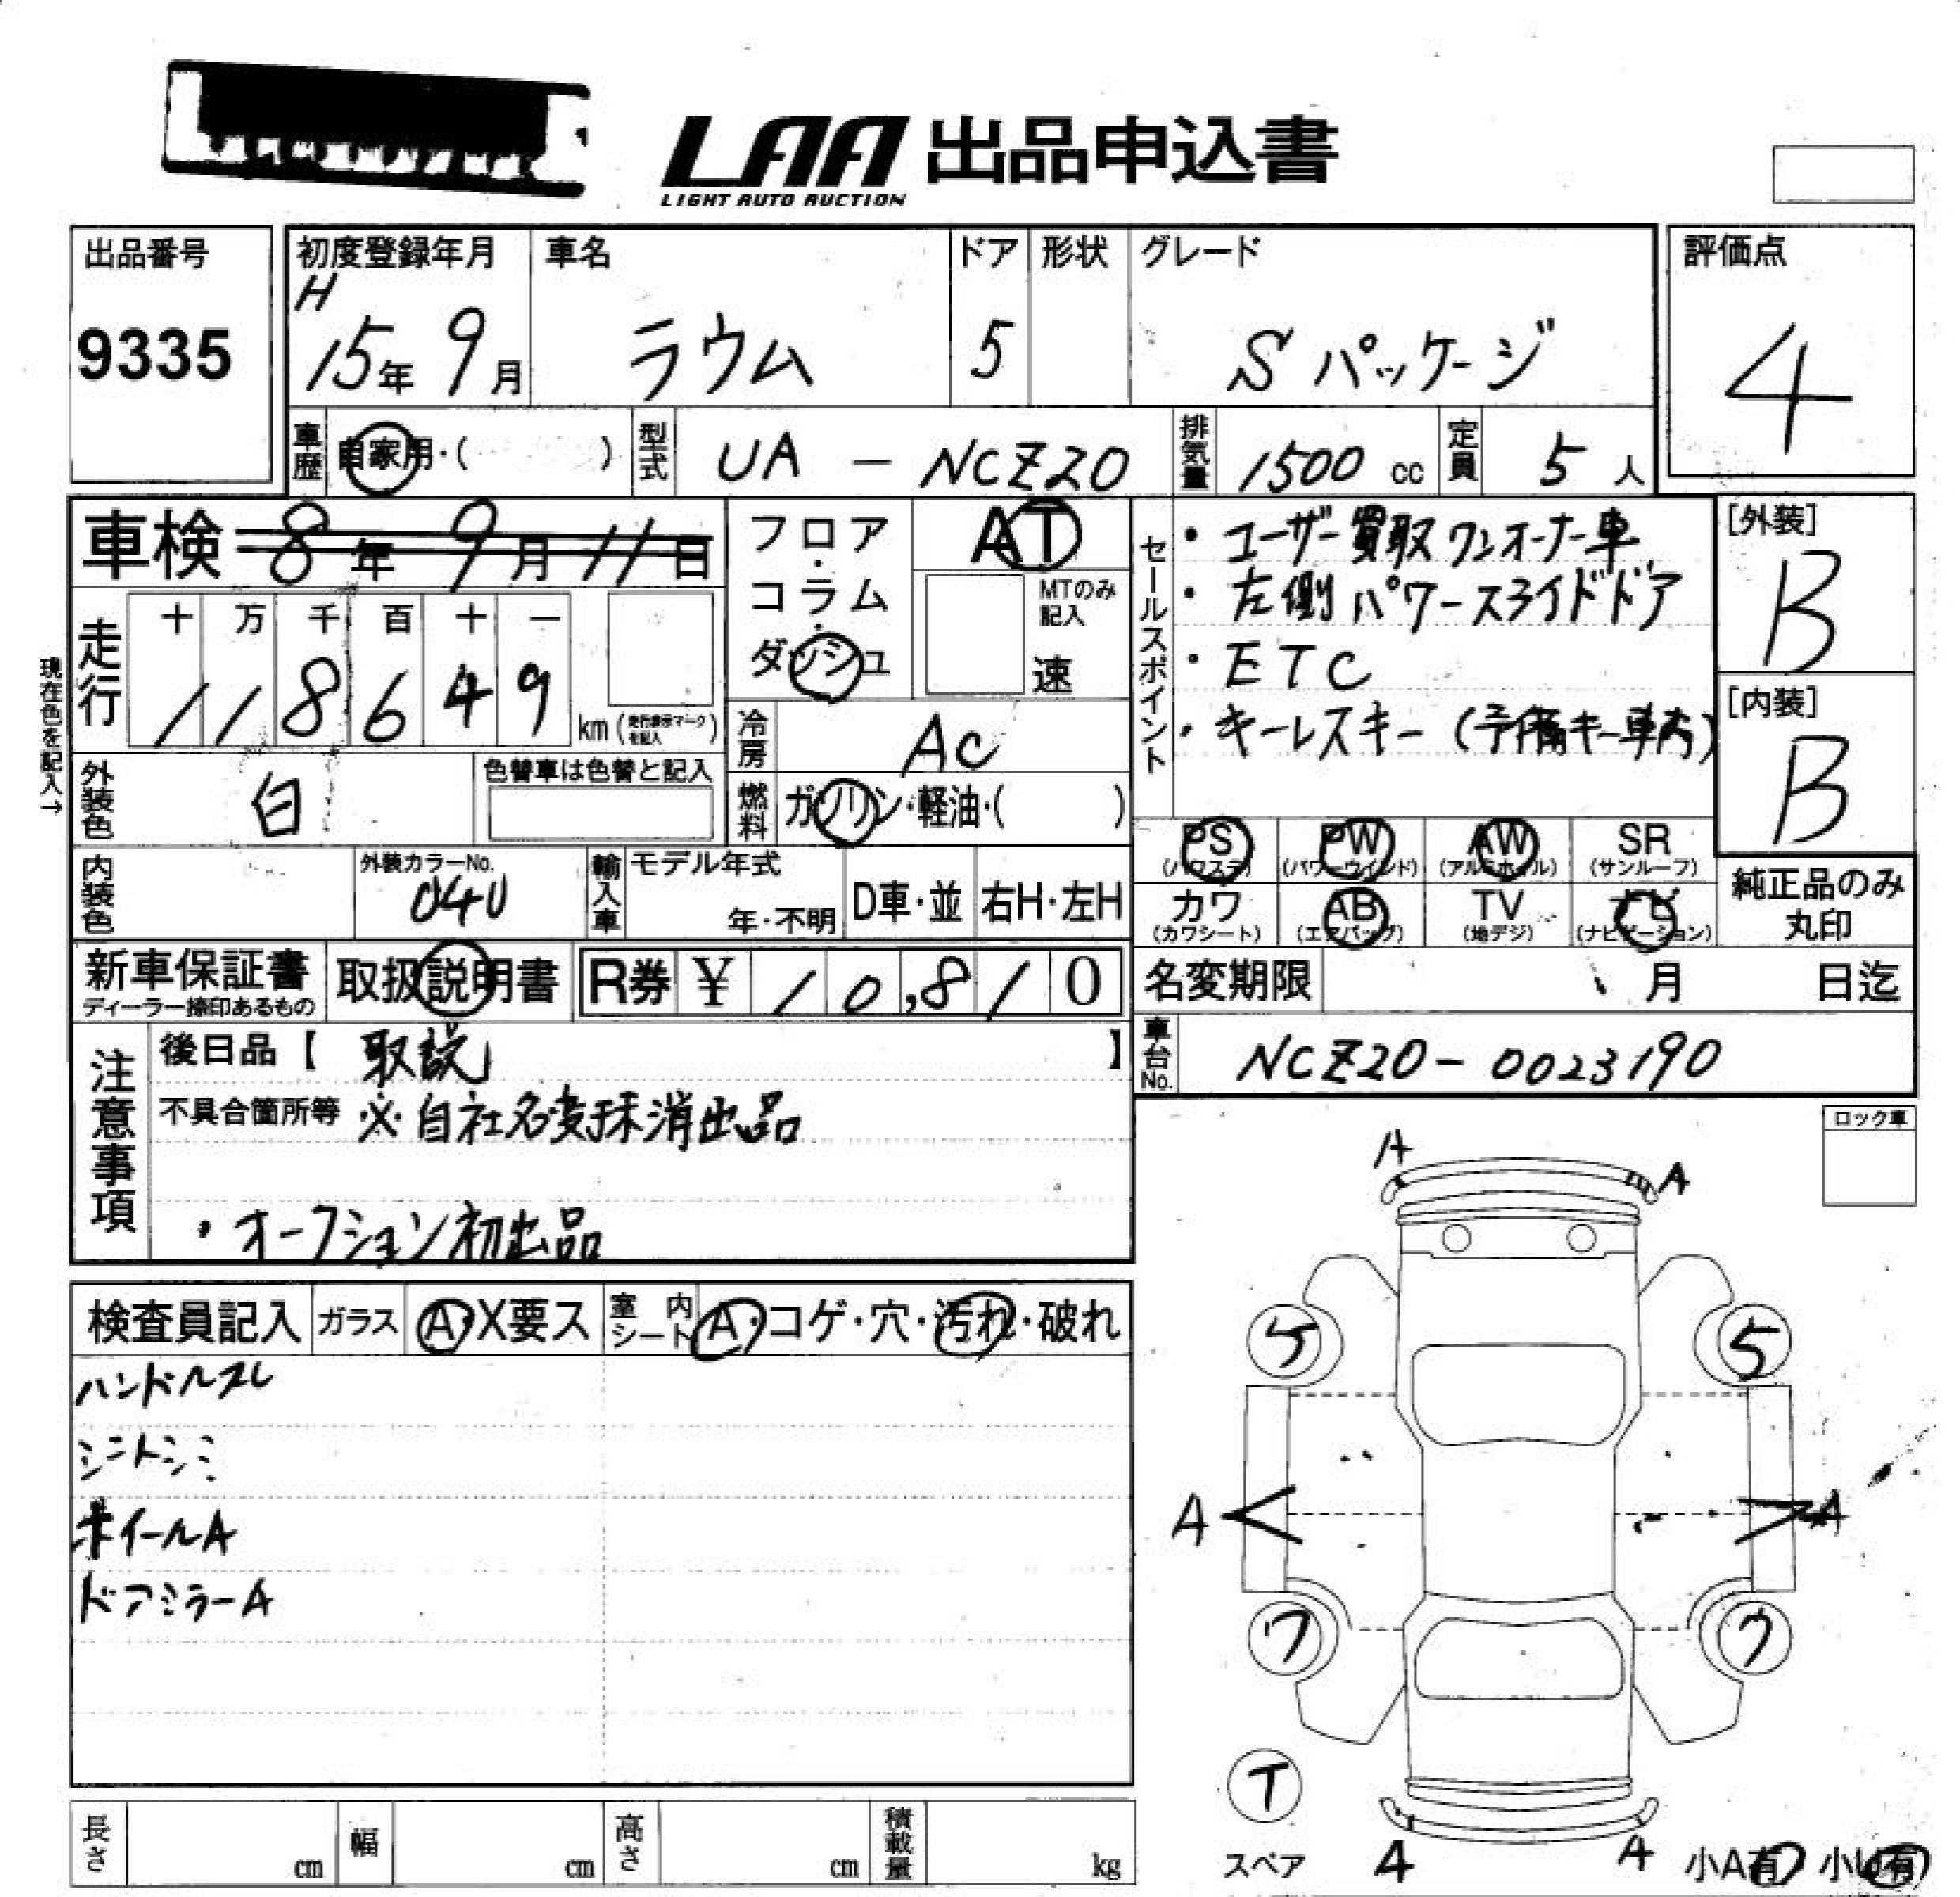 LAA 出品申込書
LIGHT AUTO AUCTION
出品番号
9335
初度登録年月
H
15年 9月
車名
ラウム
ドア
5
形状
グレード
Sパッケージ
評価点
4
車歴 自家用・( )
型式 UA - NCZ20
排気量 1500 cc
定員 5 人
車検 8年 9月 11日
フロア・コラム・ダッシュ
AT
MTのみ記入
速
走行
十 万 千 百 十 一
1 1 8 6 4 9 km (走行表示マークを記入)
現在色を記入→
冷房 AC
外装色 白
色替車は色替と記入
燃料 ガソリン・軽油・( )
内装色
外装カラーNo.
040
輸入車
モデル年式
年・不明
D車・並
右H・左H
新車保証書
ディーラー捺印あるもの
取扱説明書
R券 ¥ 10,810
セールスポイント
・ユーザー買取ワンオーナー車
・左側パワースライドドア
・ETC
・キーレスキー(予備キー車内)
[外装]
B
[内装]
B
PS (パワステ)
PW (パワーウインド)
AW (アルミホイル)
SR (サンルーフ)
カワ (カワシート)
AB (エアバッグ)
TV (地デジ)
ナビ (ナビゲーション)
純正品のみ丸印
名変期限 月 日迄
車台No. NCZ20-0023190
注意事項
後日品【 取説 】
不具合箇所等 ※自社名変抹消出品
・オークション初出品
ロック車
検査員記入
ガラス A・X要ス
室内シート A・コゲ・穴・汚れ・破れ
ハンドルスレ
シートシミ
ホイールA
ドアミラーA
A
A
5
5
A
A
ワ
ワ
T
スペア
A
A
小A有 小U有
長さ cm
幅 cm
高さ cm
積載量 kg